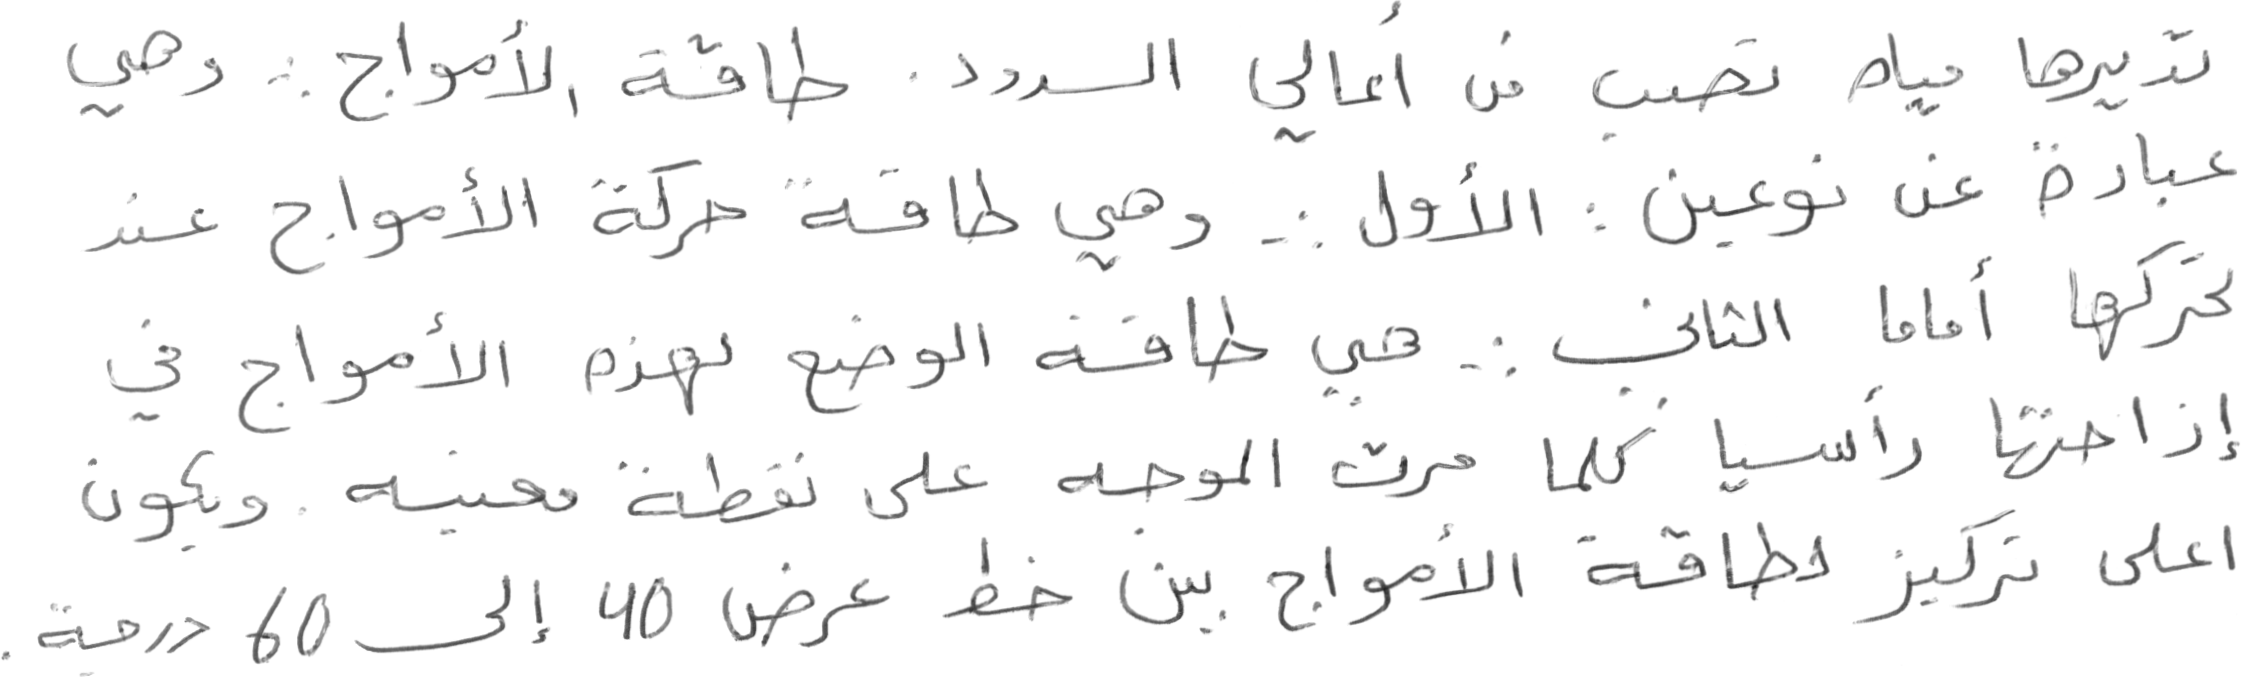 تديرها مياه تصب من أعالي السدود. طاقة الأمواج :- وهي
عبارة عن نوعين : الأول :- وهي طاقة حركة الأمواج عند
تحركها أماما الثاني :- هي طاقة الوضع لهذه الأمواج في
إزاحتها رأسيا كلما مرت الموجه على نقطة معينه . ويكون
اعلى تركيز لطاقة الأمواج بين خط عرض 40 إلى 60 درجة .